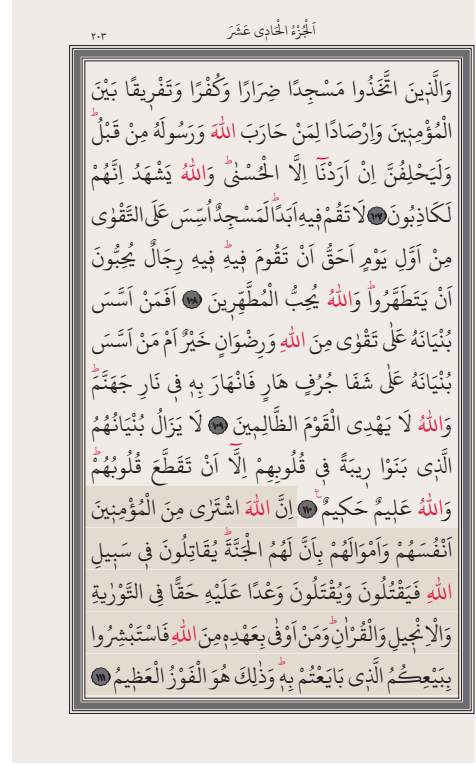 اَلْجُزْءُ الْحَادِى عَشَرَ
٢٠٣
وَالَّذِينَ اتَّخَذُوا مَسْجِدًا ضِرَارًا وَكُفْرًا وَتَفْرِيقًا بَيْنَ
الْمُؤْمِنِينَ وَاِرْصَادًا لِمَنْ حَارَبَ اللّٰهَ وَرَسُولَهُ مِنْ قَبْلُۜ
وَلَيَحْلِفُنَّ اِنْ اَرَدْنَٓا اِلَّا الْحُسْنٰىۜ وَاللّٰهُ يَشْهَدُ اِنَّهُمْ
لَكَاذِبُونَ ﴿١٠٧﴾ لَا تَقُمْ فِيهِ اَبَدًاۜ لَمَسْجِدٌ اُسِّسَ عَلَى التَّقْوٰى
مِنْ اَوَّلِ يَوْمٍ اَحَقُّ اَنْ تَقُومَ فِيهِۜ فِيهِ رِجَالٌ يُحِبُّونَ
اَنْ يَتَطَهَّرُواۜ وَاللّٰهُ يُحِبُّ الْمُطَّهِّرِينَ ﴿١٠٨﴾ اَفَمَنْ اَسَّسَ
بُنْيَانَهُ عَلٰى تَقْوٰى مِنَ اللّٰهِ وَرِضْوَانٍ خَيْرٌ اَمْ مَنْ اَسَّسَ
بُنْيَانَهُ عَلٰى شَفَا جُرُفٍ هَارٍ فَانْهَارَ بِهِ فِى نَارِ جَهَنَّمَۜ
وَاللّٰهُ لَا يَهْدِى الْقَوْمَ الظَّالِمِينَ ﴿١٠٩﴾ لَا يَزَالُ بُنْيَانُهُمُ
الَّذِى بَنَوْا رِيبَةً فِى قُلُوبِهِمْ اِلَّٓا اَنْ تَقَطَّعَ قُلُوبُهُمْۜ
وَاللّٰهُ عَلِيمٌ حَكِيمٌ ﴿١١٠﴾ اِنَّ اللّٰهَ اشْتَرٰى مِنَ الْمُؤْمِنِينَ
اَنْفُسَهُمْ وَاَمْوَالَهُمْ بِاَنَّ لَهُمُ الْجَنَّةَۜ يُقَاتِلُونَ فِى سَبِيلِ
اللّٰهِ فَيَقْتُلُونَ وَيُقْتَلُونَ وَعْدًا عَلَيْهِ حَقًّا فِى التَّوْرٰيةِ
وَالْاِنْجِيلِ وَالْقُرْاٰنِۜ وَمَنْ اَوْفٰى بِعَهْدِهِ مِنَ اللّٰهِ فَاسْتَبْشِرُوا
بِبَيْعِكُمُ الَّذِى بَايَعْتُمْ بِهِۜ وَذٰلِكَ هُوَ الْفَوْزُ الْعَظِيمُ ﴿١١١﴾